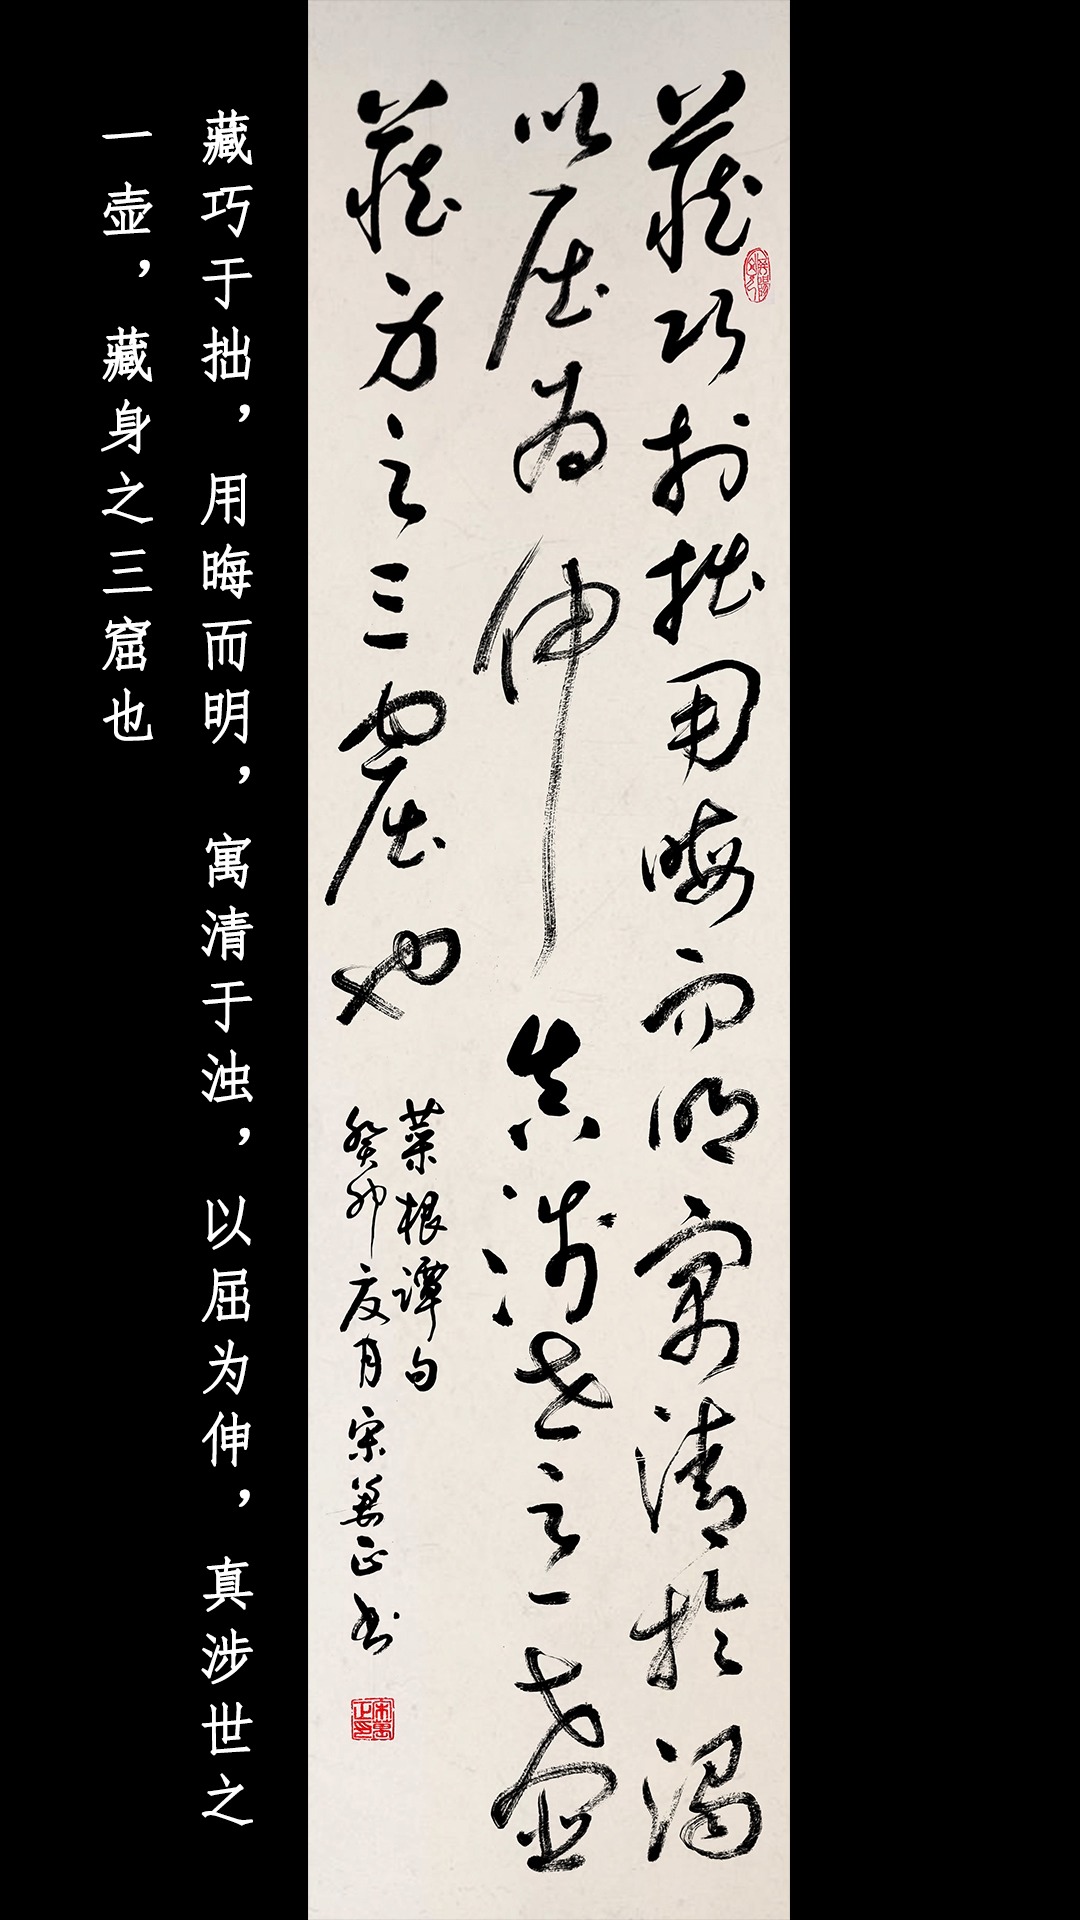 藏巧於拙用晦而明寓清於濁
以屈為伸真涉世之一壺
藏身之三窟也
菜根譚句
癸卯夏月宋萬正书
宋萬正印
藏巧于拙，用晦而明，寓清于浊，以屈为伸，真涉世之
一壶，藏身之三窟也